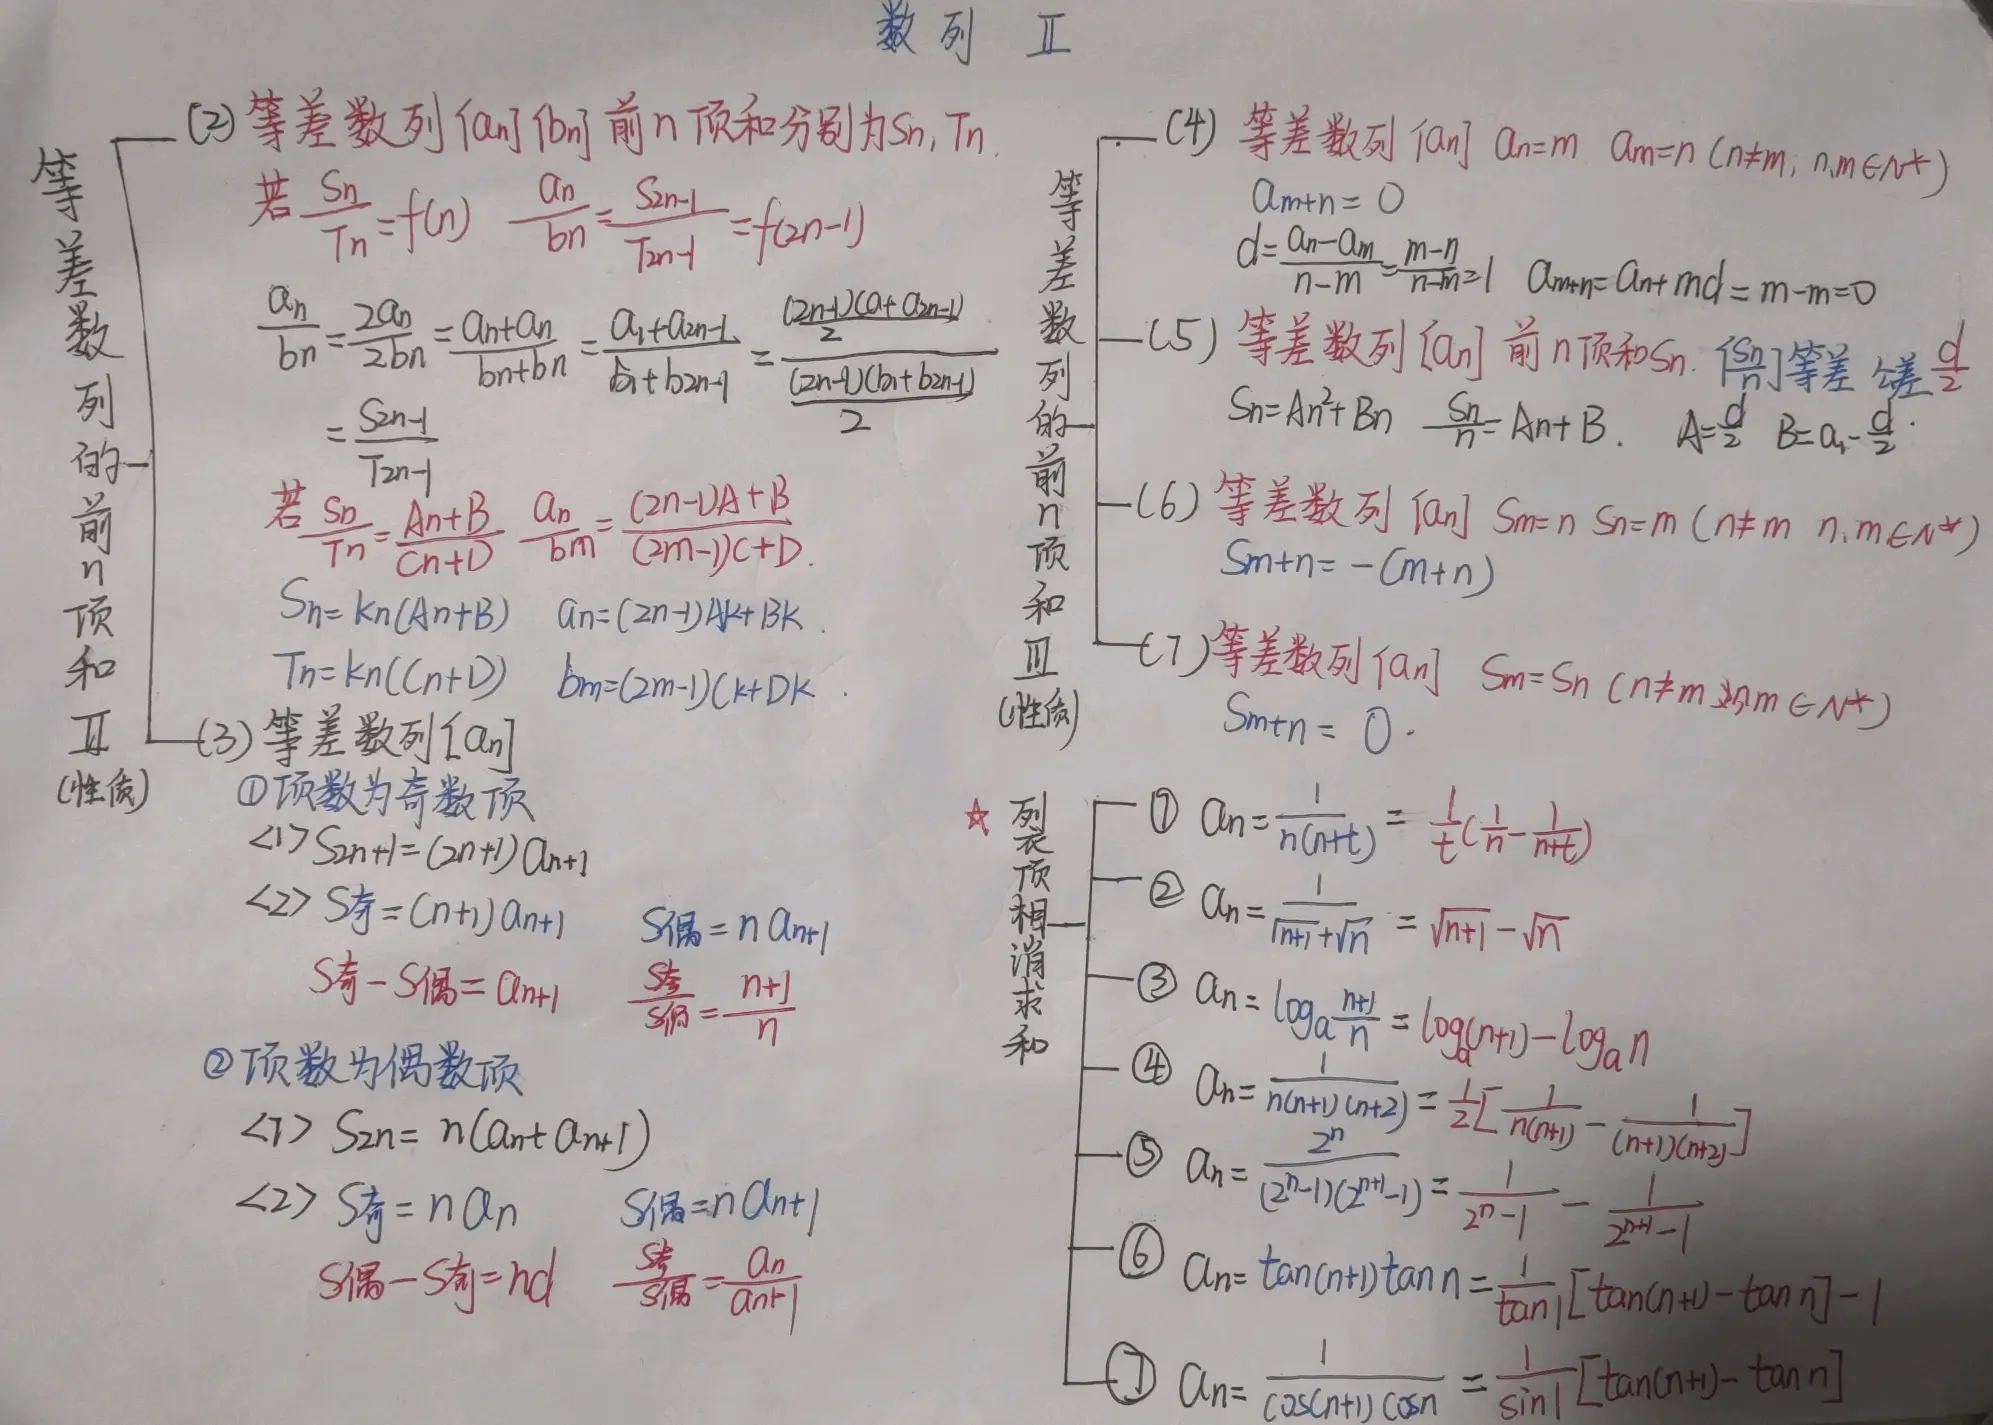 数列 Ⅱ
等差数列的前n项和Ⅱ
(性质)
(2) 等差数列{an} {bn} 前n项和分别为Sn, Tn.
若 Sn/Tn=f(n) an/bn=S2n-1/T2n-1=f(2n-1)
an/bn=2an/2bn=(an+an)/(bn+bn)=(a1+a2n-1)/(b1+b2n-1)=((2n-1)(a+a2n-1)/2)/((2n-1)(b1+b2n-1)/2)
=S2n-1/T2n-1
若 Sn/Tn=(An+B)/(Cn+D) an/bm=((2n-1)A+B)/((2m-1)C+D).
Sn=kn(An+B) an=(2n-1)Ak+Bk.
Tn=kn(Cn+D) bm=(2m-1)Ck+Dk.
(3) 等差数列{an}
①项数为奇数项
<1> S2n+1=(2n+1)an+1
<2> S奇=(n+1)an+1 S偶=nan+1
S奇-S偶=an+1 S奇/S偶=(n+1)/n
②项数为偶数项
<1> S2n=n(an+an+1)
<2> S奇=nan S偶=nan+1
S偶-S奇=nd S奇/S偶=an/an+1
等差数列的前n项和Ⅲ
(性质)
(4) 等差数列{an} an=m am=n (n≠m, n,m∈N*)
am+n=0
d=(an-am)/(n-m)=(m-n)/(n-m)=1 am+n=an+md=m-m=0
(5) 等差数列{an} 前n项和Sn. {Sn/n}等差 公差d/2
Sn=An²+Bn Sn/n=An+B. A=d/2 B=a1-d/2.
(6) 等差数列{an} Sm=n Sn=m (n≠m n,m∈N*)
Sm+n=-(m+n)
(7) 等差数列{an} Sm=Sn (n≠m n,m∈N*)
Sm+n=0.
☆裂项相消求和
① an=1/(n(n+t))=1/t(1/n-1/(n+t))
② an=1/(√(n+1)+√n)=√(n+1)-√n
③ an=loga (n+1)/n=loga(n+1)-loga n
④ an=1/(n(n+1)(n+2))=1/2[1/(n(n+1))-1/((n+1)(n+2))]
⑤ an=2ⁿ/((2ⁿ-1)(2ⁿ⁺¹-1))=1/(2ⁿ-1)-1/(2ⁿ⁺¹-1)
⑥ an=tan(n+1)tan n=1/tan1[tan(n+1)-tan n]-1
⑦ an=1/(cos(n+1)cosn)=1/sin1[tan(n+1)-tan n]